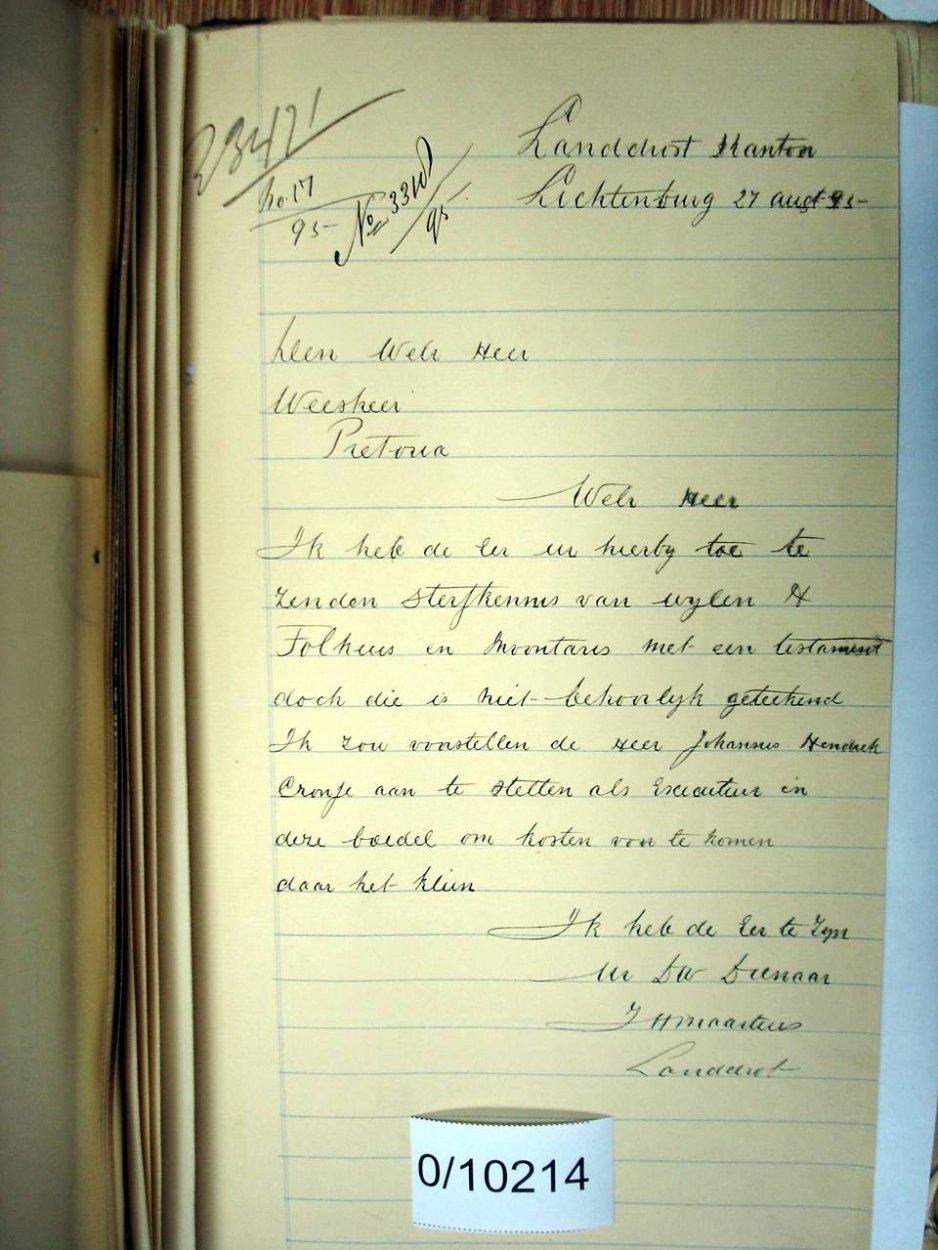 23421
No. 17
95
No 3310
95
Landdrost Kanton
Lichtenburg 27 augt 95
Den Wele Heer
Weesheer
Pretoria
Wele Heer
Ik heb de Eer UE hierby toe te
zenden Sterfkennis van wylen H
Folkus en Inventaris met een testament
doch die is niet behoorlyk geteekend
Ik zou voorstellen de Heer Johannes Hendrik
Cronje aan te stellen als Executeur in
deze boedel om kosten voor te komen
daar het klein
Ik heb de Eer te Zyn
UE DW Dienaar
Landdrost
0/10214